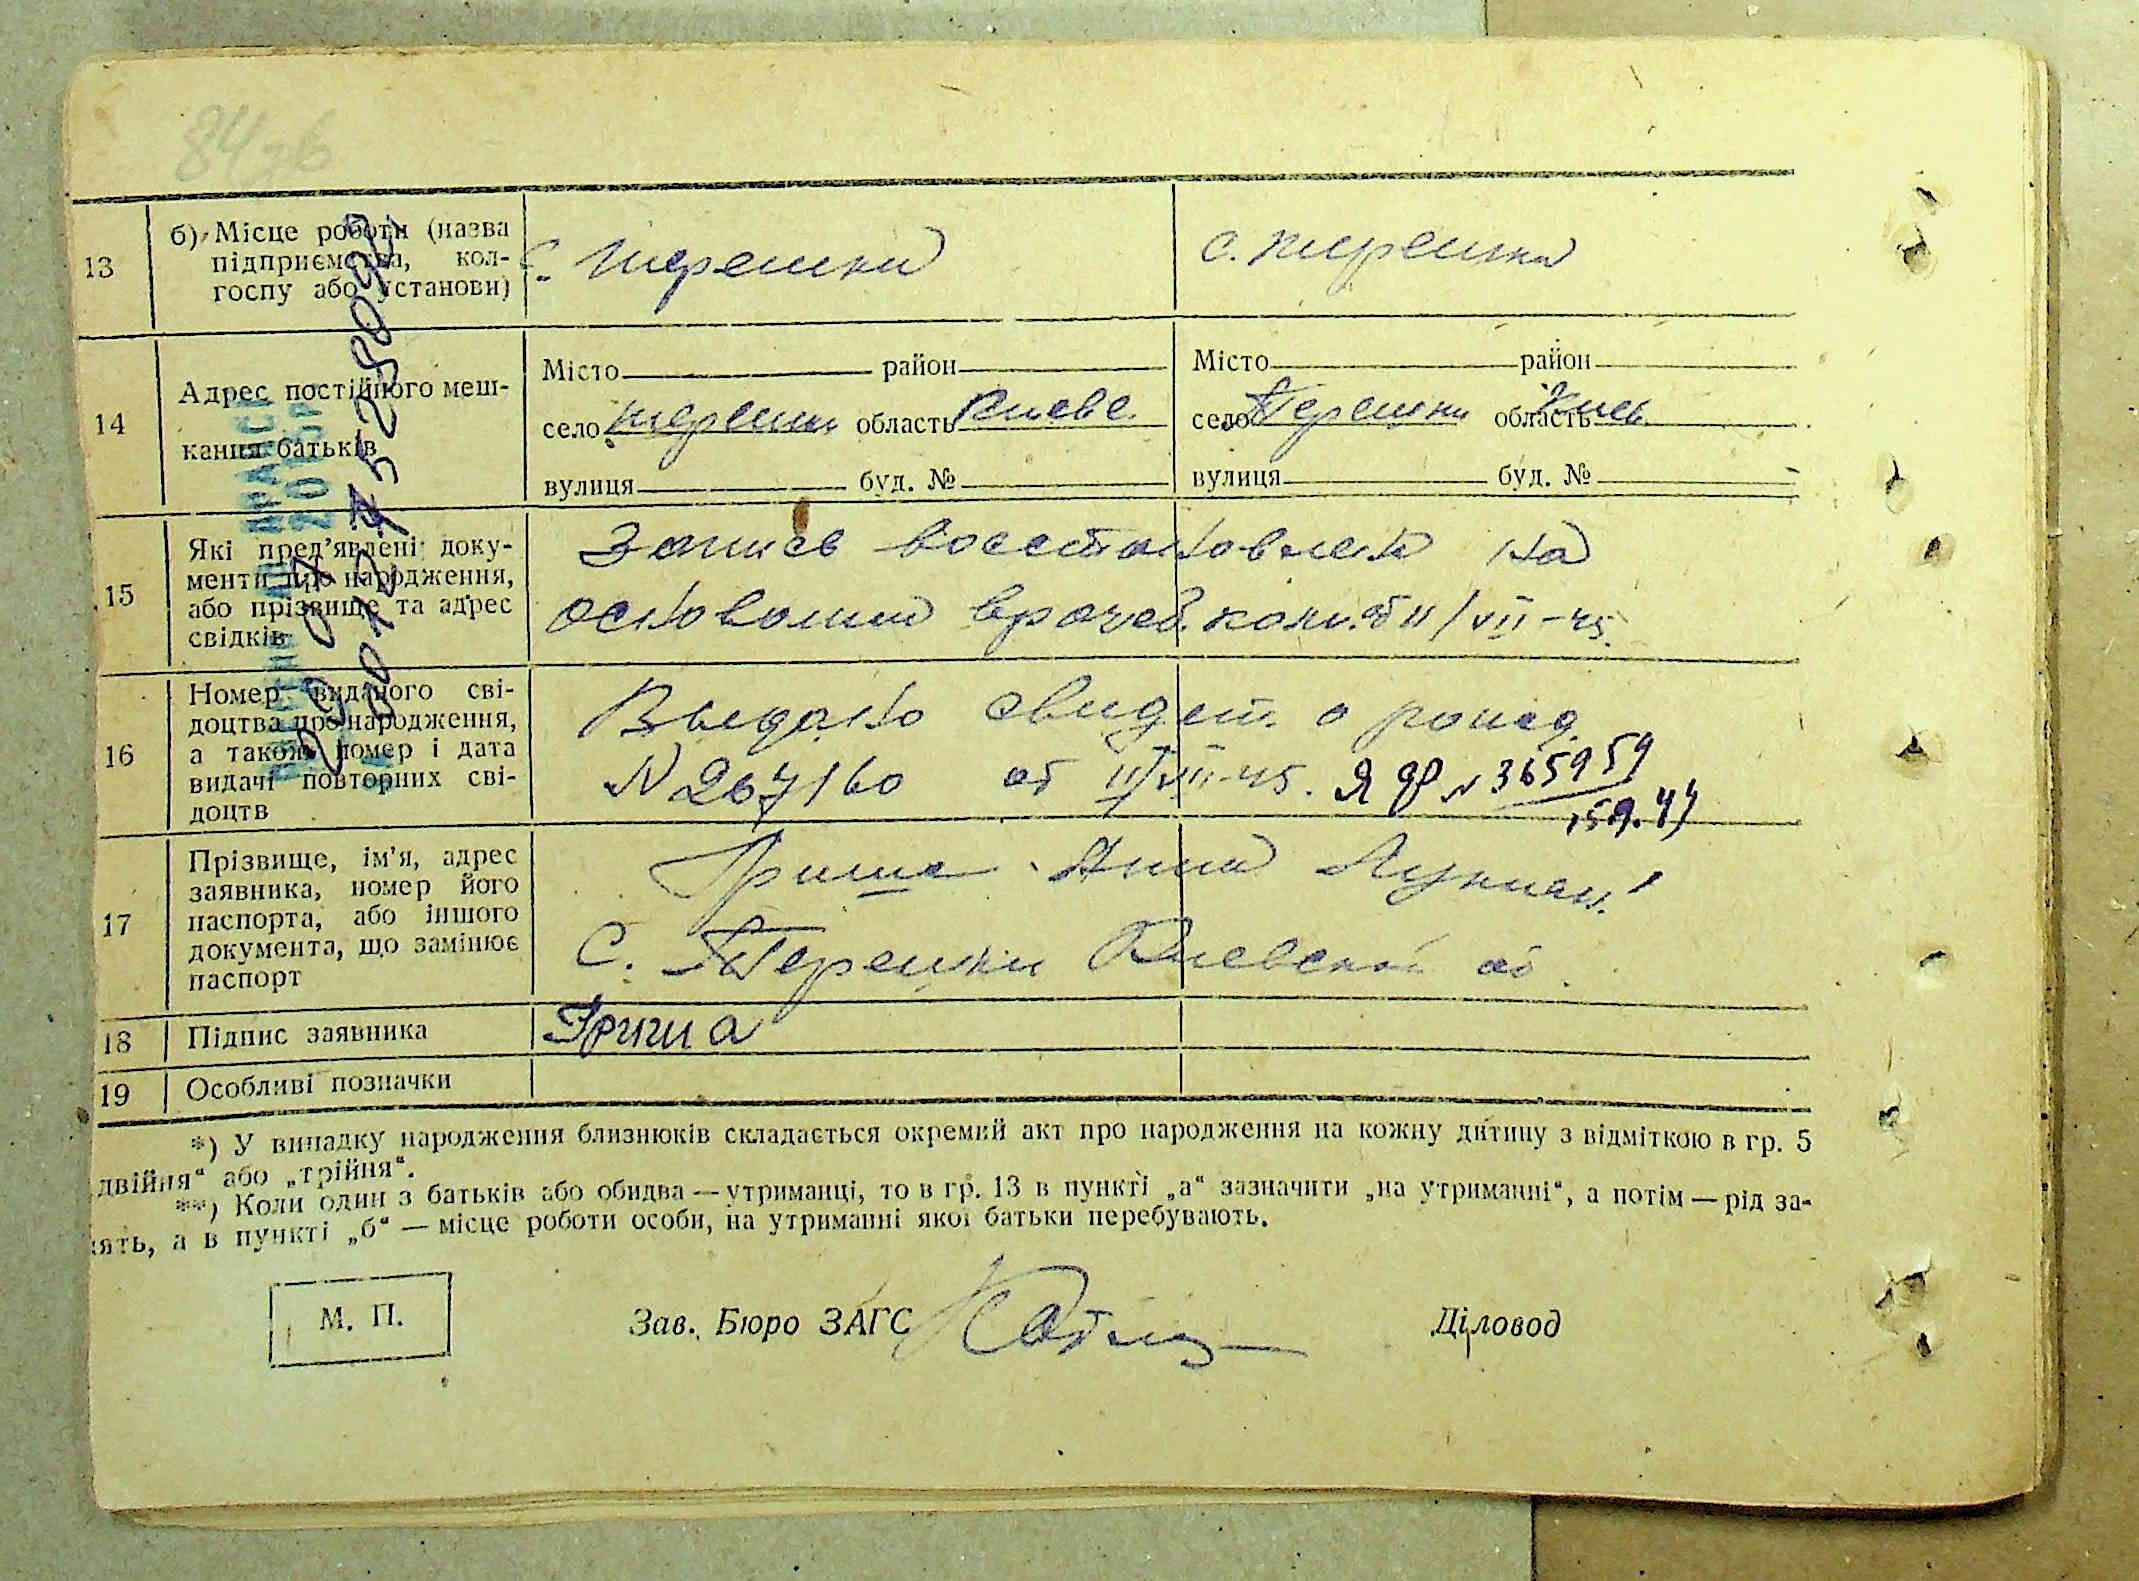 84зв
13
б) Місце роботи (назва
підприємства, кол-
госпу або установи)
с. Терешки
с. Терешки
14
Адрес постійного меш-
кання батьків
Місто район
село Терешки область Киевс.
вулиця буд. №
Місто район
село Терешки область Киев.
вулиця буд. №
15
Які пред’явлені доку-
менти про народження,
або прізвище та адрес
свідків
Запись восстановлена на
основании врачеб. коми. от 11/VII-45.
16
Номер виданого сві-
доцтва про народження,
а також номер і дата
видачі повторних сві-
доцтв
Выдано свидет. о рожд.
N 267160 от 11/VII-45. Я ЯР N 365959
17
Прізвище, ім’я, адрес
заявника, номер його
паспорта, або іншого
документа, що замінює
паспорт
Гриша Анна Лукиан.
С. Терешки Киевской об.
18
Підпис заявника
Гриша
19
Особливі позначки
*) У випадку народження близнюків складається окремий акт про народження на кожну дитину з відміткою в гр. 5
двійня“ або „трійня“.
**) Коли один з батьків або обидва — утриманці, то в гр. 13 в пункті „а“ зазначити „на утриманні“, а потім — рід за-
нять, а в пункті „б“ — місце роботи особи, на утриманні якої батьки перебувають.
М. П.
Зав. Бюро ЗАГС
Діловод